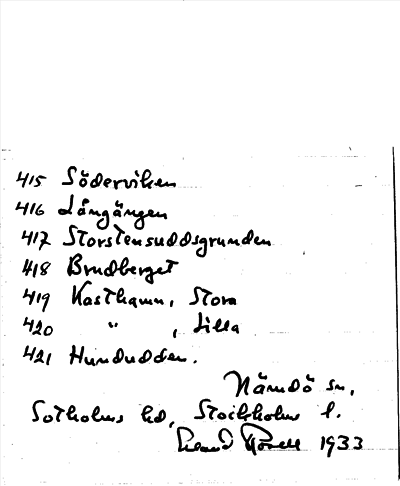 415 Söderviken
416 Långängen
417 Storstensuddsgrunden
418 Brudberget
419 Kasthamn, Stora
420 " , Lilla
421 Hundudden.
Nämdö sn,
Sotholms hd, Stockholms l.
1933